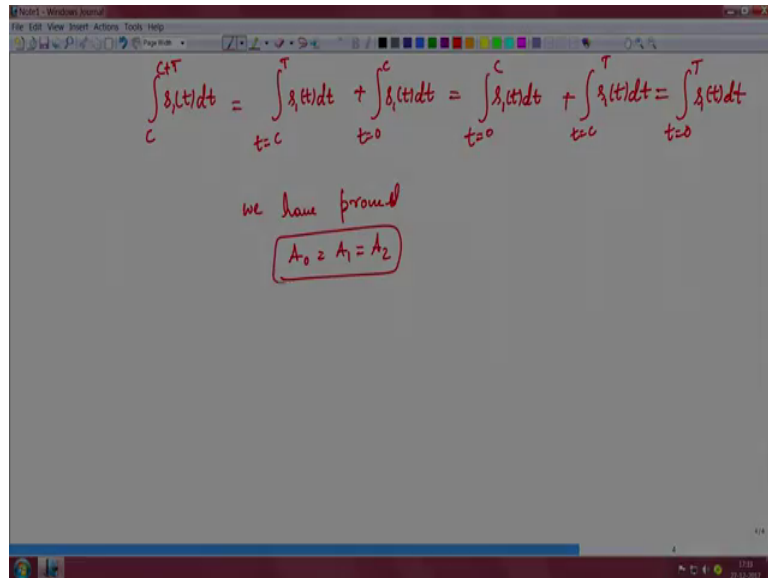 Note1 - Windows Journal
File Edit View Insert Actions Tools Help
Page Width
∫_C^{C+T} s₁(t)dt = ∫_{t=C}^{T} s₁(t)dt + ∫_{t=0}^{C} s₁(t)dt = ∫_{t=0}^{C} s₁(t)dt + ∫_{t=C}^{T} s₁(t)dt = ∫_{t=0}^{T} s₁(t)dt
we have proved
A₀ = A₁ = A₂
4